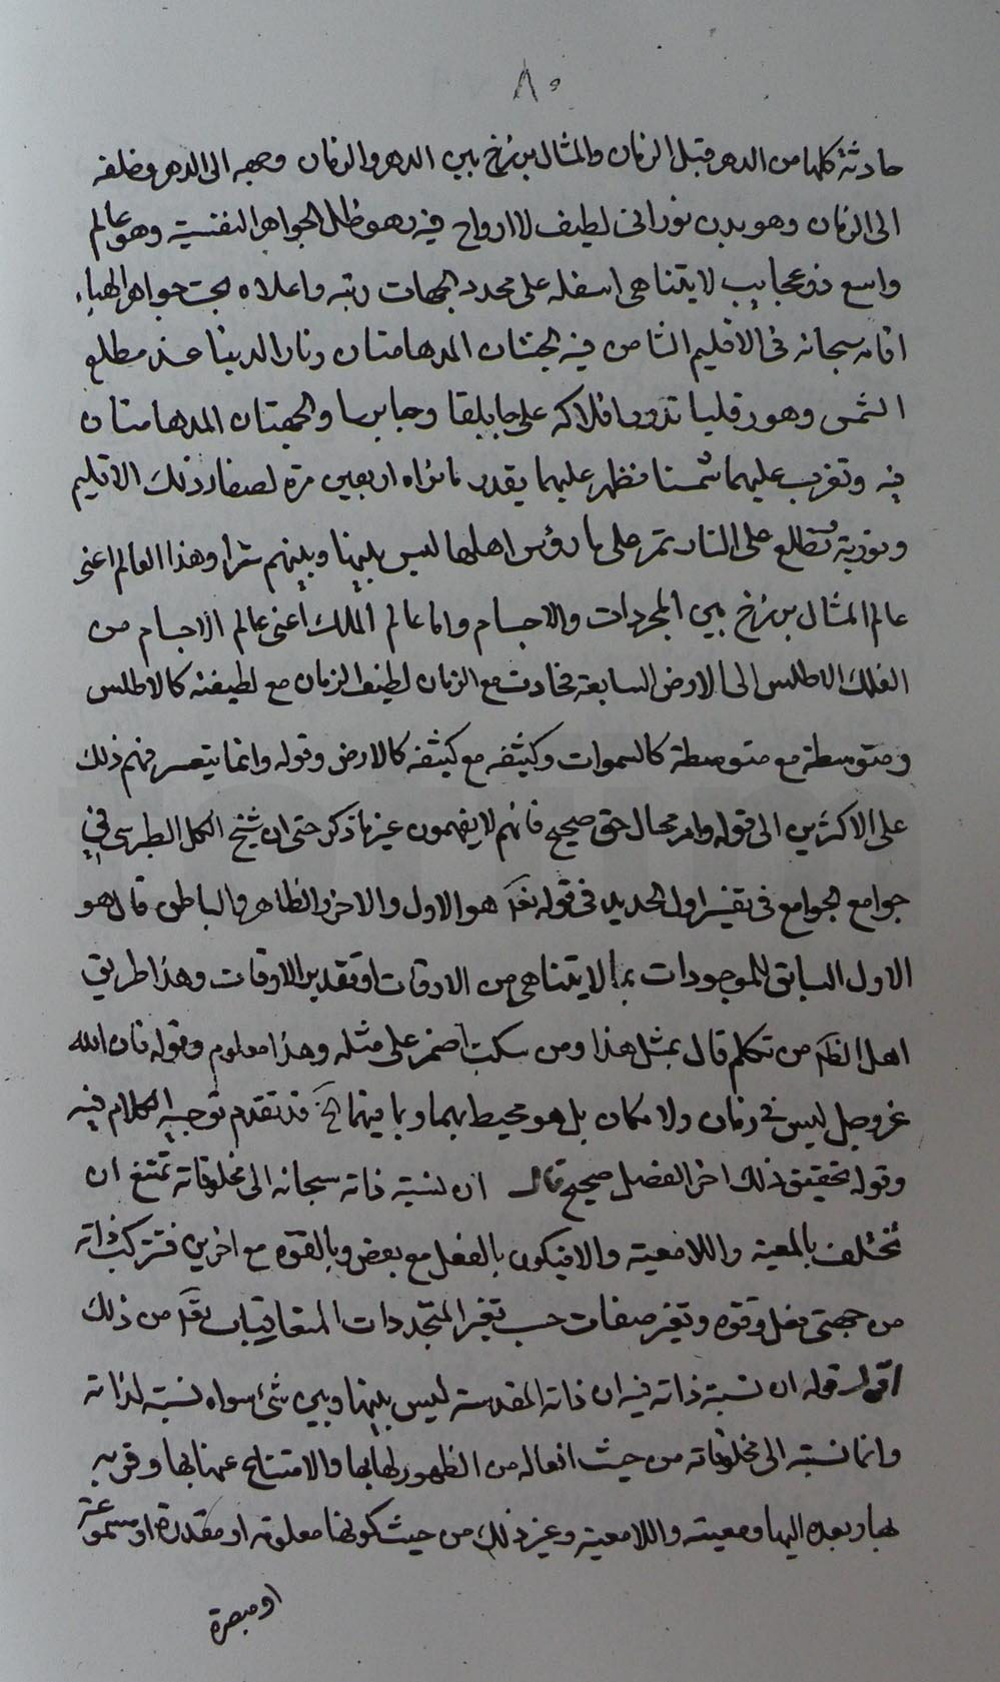 ٨٠
حادثة كلها من الدهر قبل الزمان والمثال برزخ بين الدهر والزمان وجهه الى الدهر وخلفه
الى الزمان وهو بدن نورانى لطيف لا ارواح فيه وهو ظل الجواهر النفسية وهو عالم
واسع ذو عجايب لا يتناهى اسفله على محدد الجهات رتبة واعلاه تحت جواهر الهباء
اقامه سبحانه فى الاقليم الثامن فيه الجنتان المدهامتان ونار الدنيا عند مطلع
الشمس وهورقليا تدور افلاكه على جابلقا وجابرسا والجنتان المدهامتان
فيه وتغرب عليهما شمسنا فتظهر عليهما بقدر ما نراه اربعين مرة لصفاء ذلك الاقليم
ونوريته وتطلع على النار تمر على رؤس اهلها ليس بينها وبينهم سترا وهذا العالم اعنى
عالم المثال برزخ بين المجردات والاجسام واما عالم الملك اعنى عالم الاجسام من
الفلك الاطلس الى الارض السابعة فحادث مع الزمان لطيف الزمان مع لطيفه كالاطلس
ومتوسطه مع متوسطه كالسموات وكثيفه مع كثيفه كالارض وقوله وانما يتعسر فهم ذلك
على الاكثرين الى قوله وامر محال حق صحيح فانهم لا يفهمون غير ما ذكر حتى ان شيخ الكل الطبرسى فى
جوامع الجوامع فى تفسير اول الحديد فى قوله تعالى هو الاول والاخر والظاهر والباطن قال هو
الاول السابق للموجودات بما لا يتناهى من الاوقات او تقدير الاوقات وهذا طريق
اهل الظاهر من تكلم قال بمثل هذا ومن سكت اضمر على مثله وهذا معلوم وقوله فان الله
عز وجل ليس فى زمان ولا مكان بل هو محيط بهما وبما فيهما الخ قد تقدم توجيه الكلام فيه
وقوله تحقيق ذلك اخر الفصل صحيح قال ان نسبة ذاته سبحانه الى مخلوقاته تمتنع ان
تختلف بالمعية واللامعية والا فيكون بالفعل مع بعض وبالقوة مع اخرين فتتركب ذاته
من جهتى فعل وقوة وتغير صفات حسب تغير المتجددات المتعاقبات تعالى من ذلك
اقول قوله ان نسبة ذاته فيه ان ذاته المقدسة ليس بينها وبين شئ سواه نسبة لذاته
وانما نسبته الى مخلوقاته من حيث افعاله من الظهور لها بها والامتناع عنها بها وقربه
بها وبعده اليها ومعيته واللامعية وغير ذلك من حيث كونها معلومة او مقدرة او مسموعة
او مبصرة